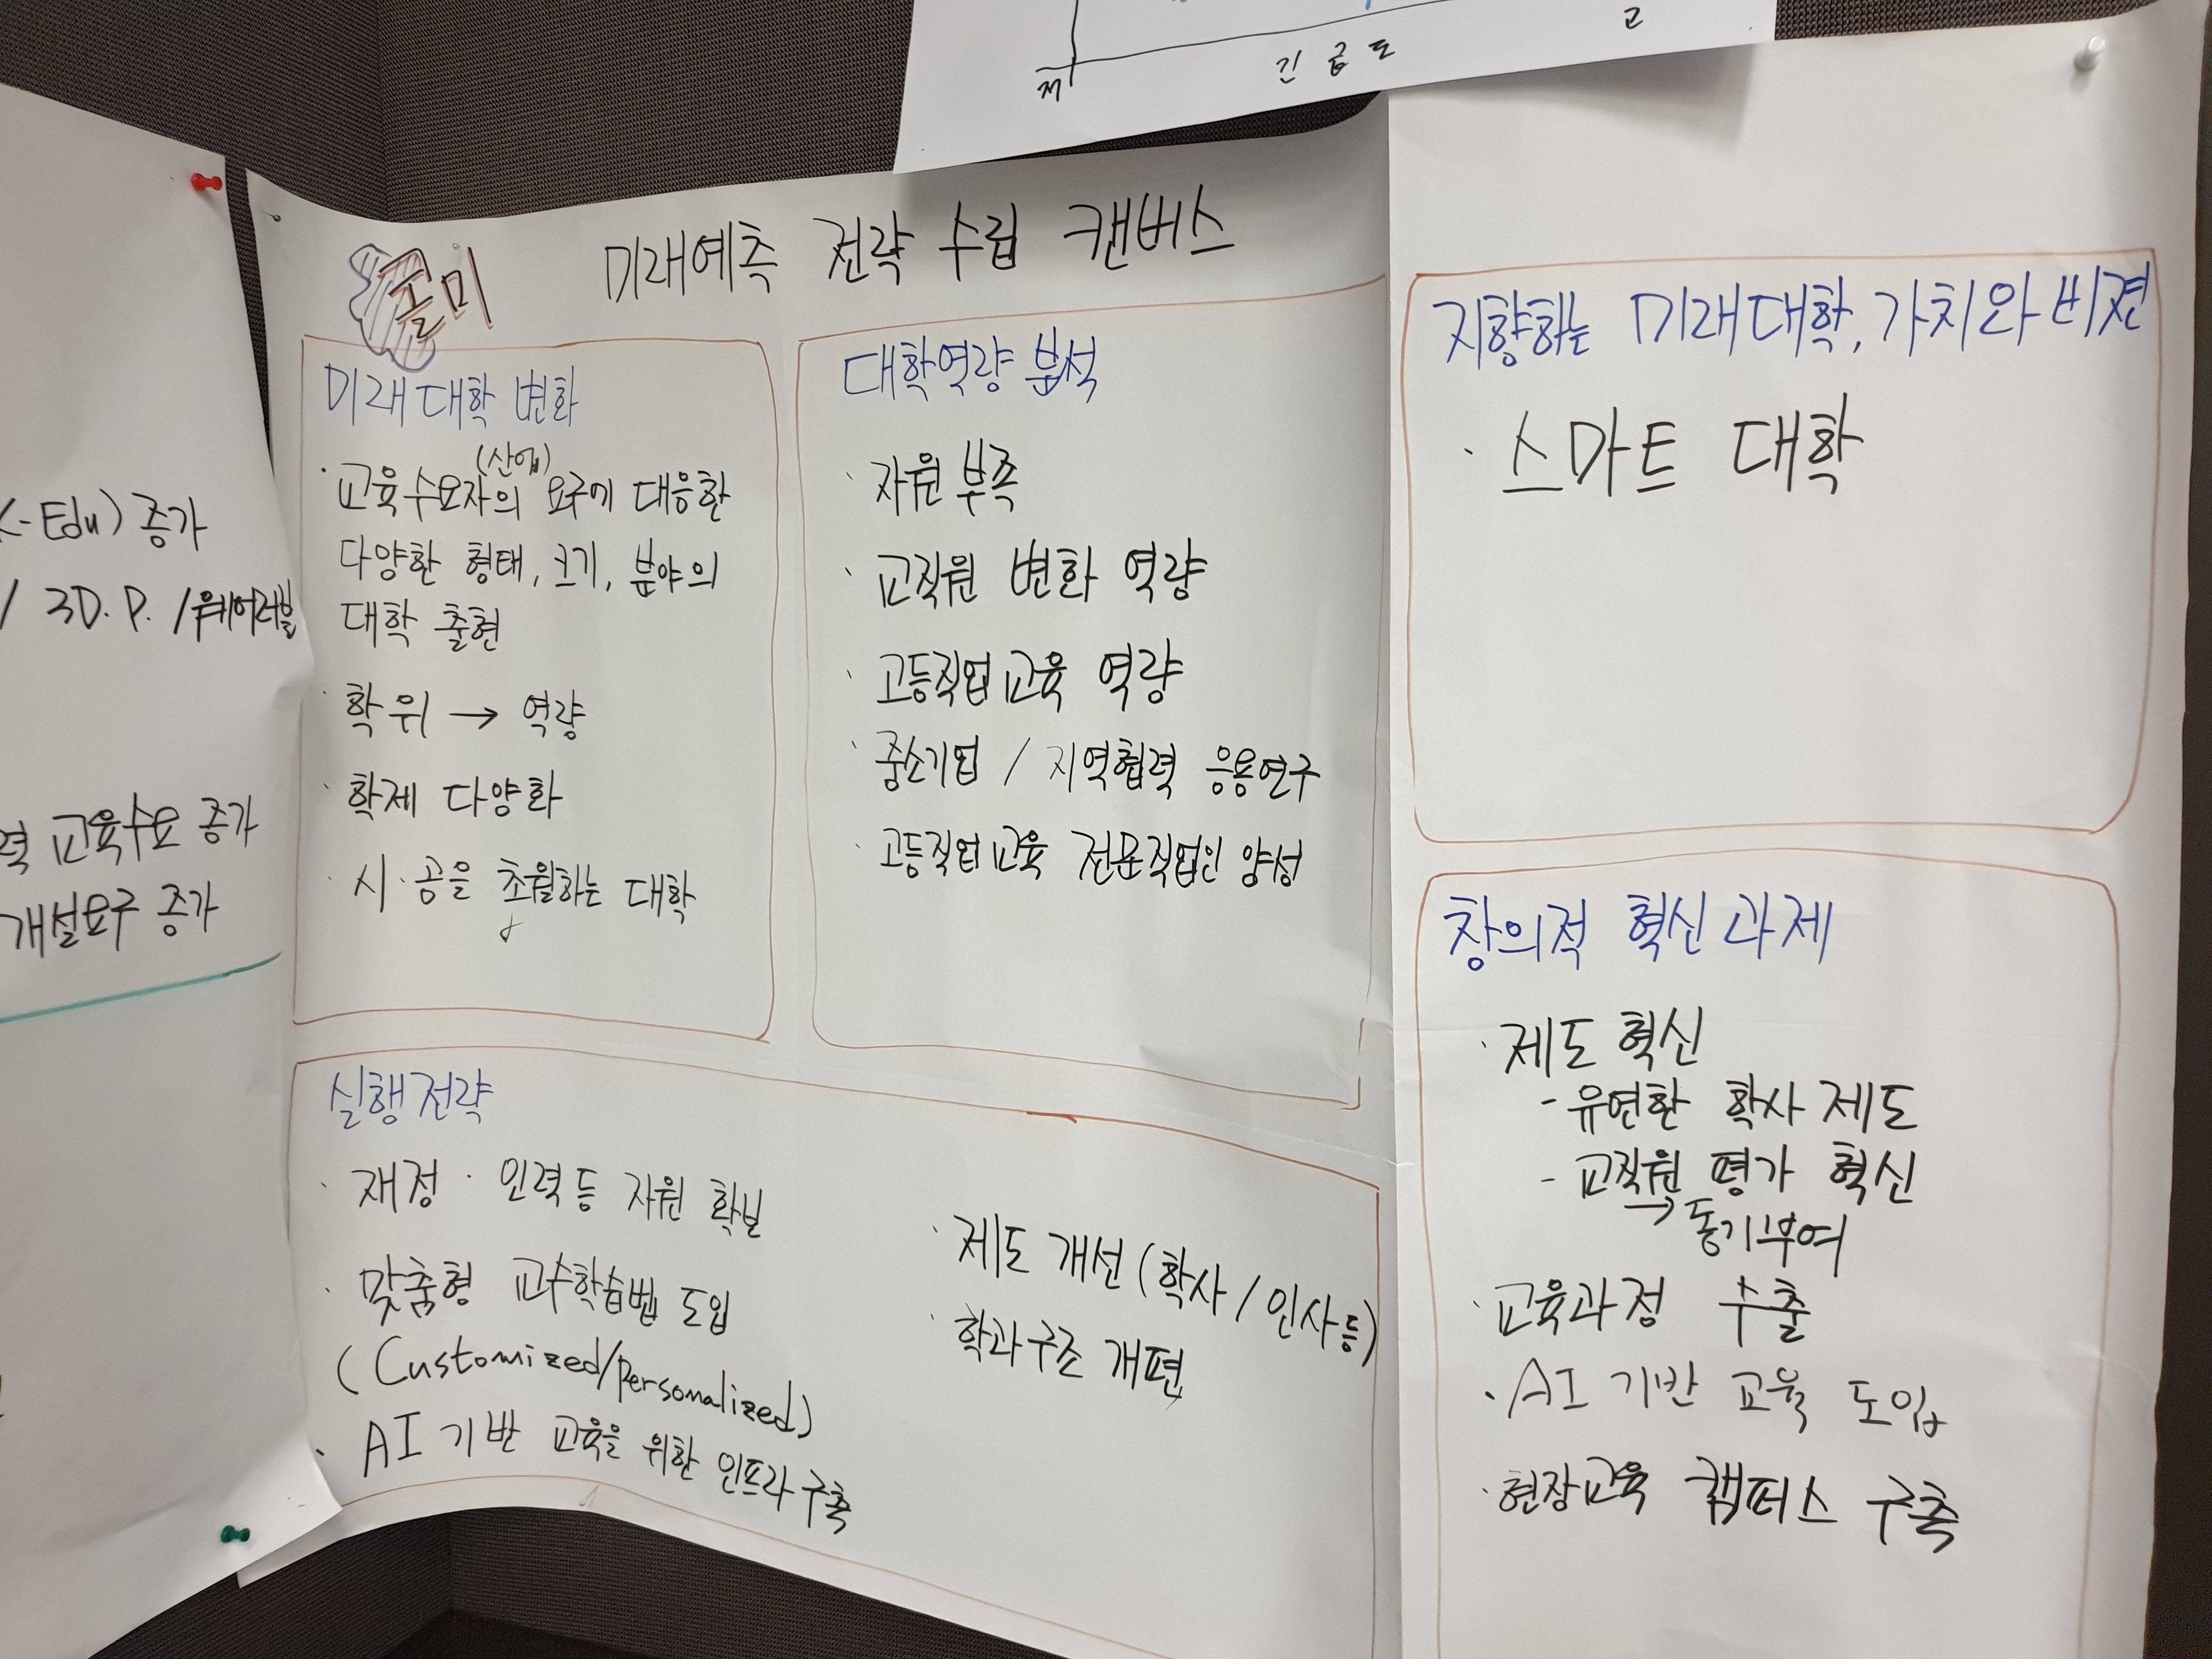 저
긴급도
고
K-Edu) 증가
/ 3D.P. /웨어러블
교육수요 증가
개설요구 증가
미래예측 전략 수립 캔버스
미래대학 변화
(산업)
· 교육수요자의 요구에 대응한
다양한 형태, 크기, 분야의
대학 출현
· 학위 → 역량
· 학제 다양화
· 시·공을 초월하는 대학
대학역량 분석
· 자원 부족
· 교직원 변화 역량
· 고등직업교육 역량
· 중소기업 / 지역협력 응용연구
· 고등직업교육 전문직업인 양성
지향하는 미래대학, 가치와 비젼
· 스마트 대학
창의적 혁신과제
· 제도 혁신
- 유연한 학사 제도
- 교직원 평가 혁신
→ 동기부여
· 교육과정 수출
· AI 기반 교육 도입
· 현장교육 캠퍼스 구축
실행전략
· 재정·인력 등 자원 확보
· 맞춤형 교수학습법 도입
(Customized/personalized)
· AI 기반 교육을 위한 인프라 구축
· 제도 개선 (학사 / 인사 등)
· 학과구조 개편